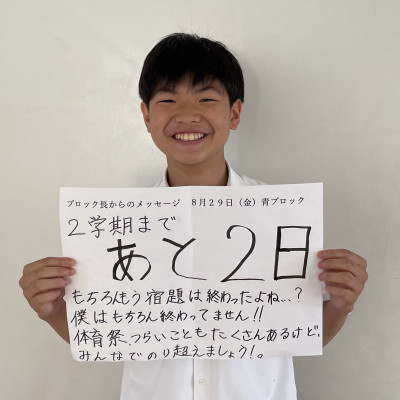 ブロック長からのメッセージ　8月29日（金）青ブロック
2学期まで
あと2日
もちろんもう宿題は終わったよね...?
僕はもちろん終わってません!!
体育祭、つらいこともたくさんあるけど、
みんなでのり超えましょう!。